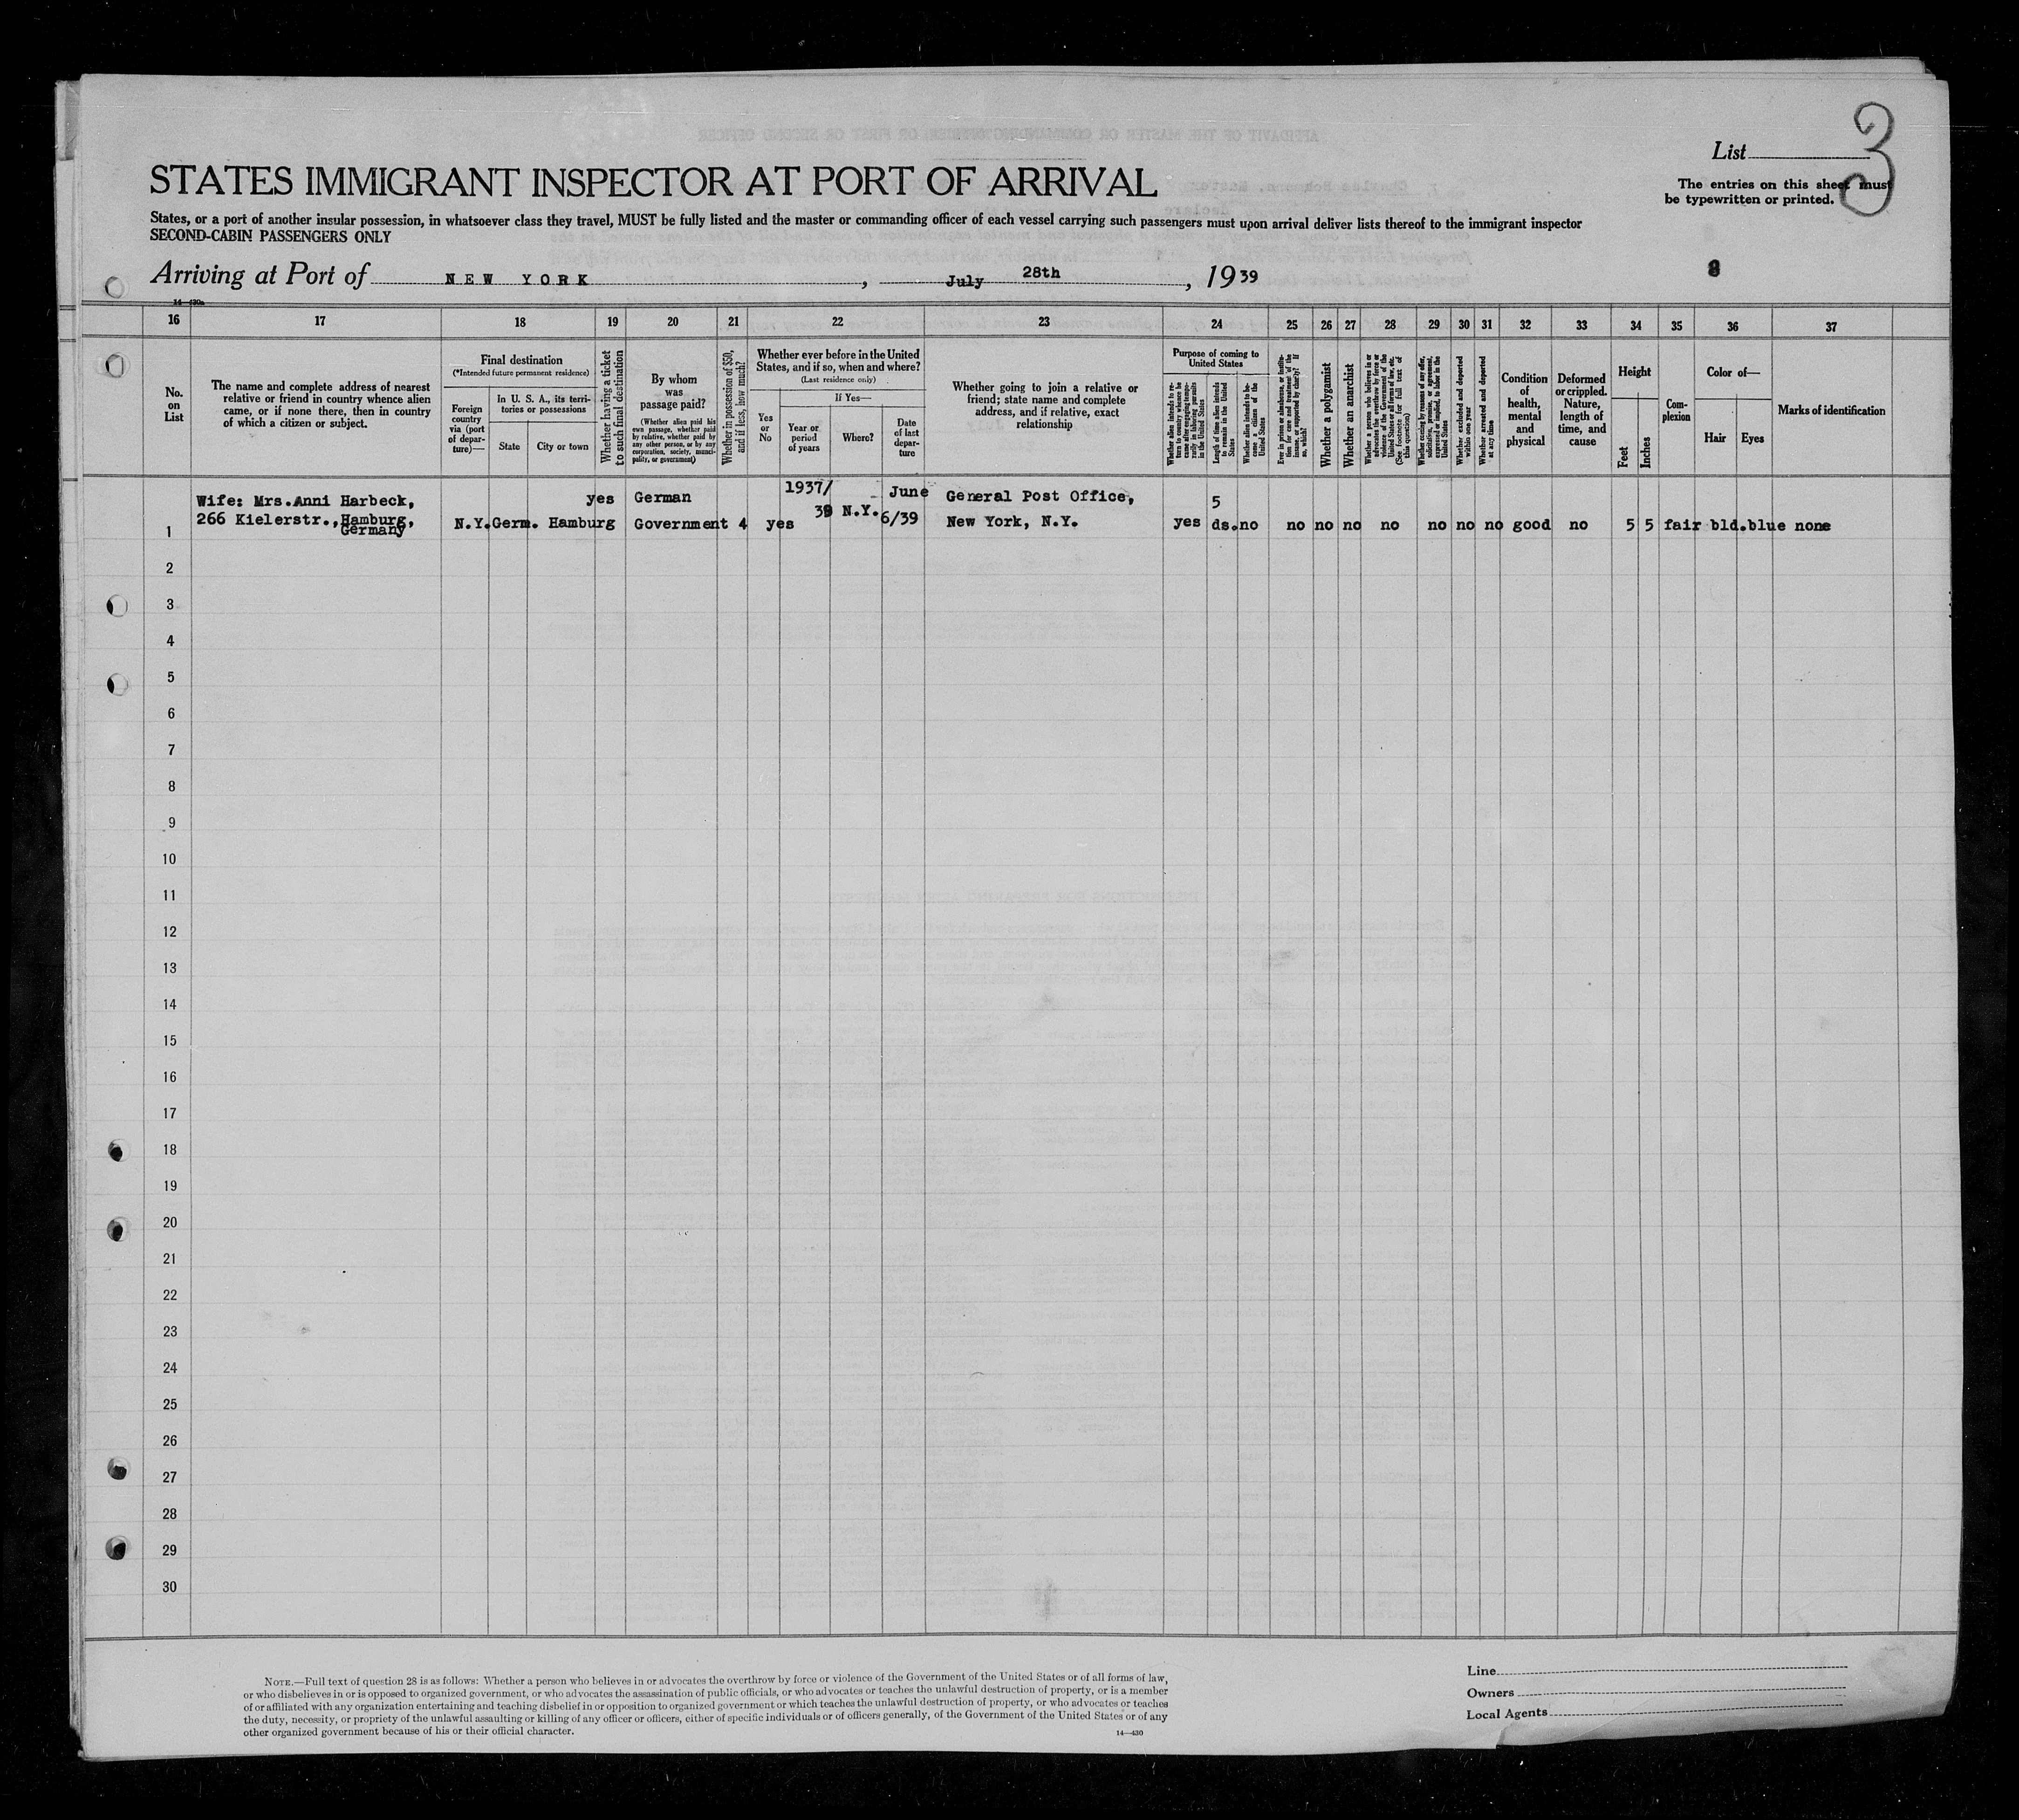 List
3
The entries on this sheet must
be typewritten or printed.
STATES IMMIGRANT INSPECTOR AT PORT OF ARRIVAL
States, or a port of another insular possession, in whatsoever class they travel, MUST be fully listed and the master or commanding officer of each vessel carrying such passengers must upon arrival deliver lists thereof to the immigrant inspector
SECOND-CABIN PASSENGERS ONLY
Arriving at Port of NEW YORK, July 28th, 1939
8
14—430a
16 17 18 19 20 21 22 23 24 25 26 27 28 29 30 31 32 33 34 35 36 37
No.
on
List
The name and complete address of nearest
relative or friend in country whence alien
came, or if none there, then in country
of which a citizen or subject.
Final destination
(*Intended future permanent residence)
Foreign
country
via (port
of depar-
ture)—
In U. S. A., its terri-
tories or possessions
State
City or town
Whether having a ticket
to such final destination
By whom
was
passage paid?
(Whether alien paid his
own passage, whether paid
by relative, whether paid by
any other person, or by any
corporation, society, munici-
pality, or government)
Whether in possession of $50,
and if less, how much?
Whether ever before in the United
States, and if so, when and where?
(Last residence only)
Yes
or
No
If Yes—
Year or
period
of years
Where?
Date
of last
depar-
ture
Whether going to join a relative or
friend; state name and complete
address, and if relative, exact
relationship
Purpose of coming to
United States
Whether alien intends to re-
turn to country whence he
came after engaging tempo-
rarily in laboring pursuits
in the United States
Length of time alien intends
to remain in the United
States
Whether alien intends to be-
come a citizen of the
United States
Ever in prison or almshouse, or institu-
tion for care and treatment of the
insane, or supported by charity? If
so, which?
Whether a polygamist
Whether an anarchist
Whether a person who believes in or
advocates the overthrow by force or
violence of the Government of the
United States or all forms of law, etc.
(See footnote for full text of
this question)
Whether coming by reasons of any offer,
solicitation, promise, or agreement,
expressed or implied, to labor in the
United States
Whether excluded and deported
within one year
Whether arrested and deported
at any time
Condition
of
health,
mental
and
physical
Deformed
or crippled.
Nature,
length of
time, and
cause
Height
Feet
Inches
Com-
plexion
Color of—
Hair
Eyes
Marks of identification
Wife: Mrs.Anni Harbeck, yes German 1937/ June General Post Office, 5
266 Kielerstr.,Hamburg, N.Y.Germ. Hamburg Government 4 yes 39 N.Y. 6/39 New York, N.Y. yes ds. no no no no no no no no good no 5 5 fair bld.blue none
Germany
1
2
3
4
5
6
7
8
9
10
11
12
13
14
15
16
17
18
19
20
21
22
23
24
25
26
27
28
29
30
NOTE.—Full text of question 28 is as follows: Whether a person who believes in or advocates the overthrow by force or violence of the Government of the United States or of all forms of law,
or who disbelieves in or is opposed to organized government, or who advocates the assassination of public officials, or who advocates or teaches the unlawful destruction of property, or is a member
of or affiliated with any organization entertaining and teaching disbelief in or opposition to organized government or which teaches the unlawful destruction of property, or who advocates or teaches
the duty, necessity, or propriety of the unlawful assaulting or killing of any officer or officers, either of specific individuals or of officers generally, of the Government of the United States or of any
other organized government because of his or their official character.
14—430
Line
Owners
Local Agents